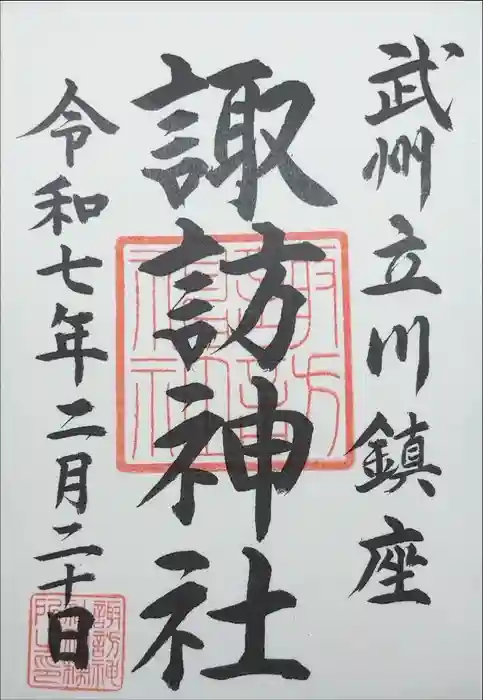 武州立川鎮座
諏訪神社
令和七年二月二十日
諏訪神社